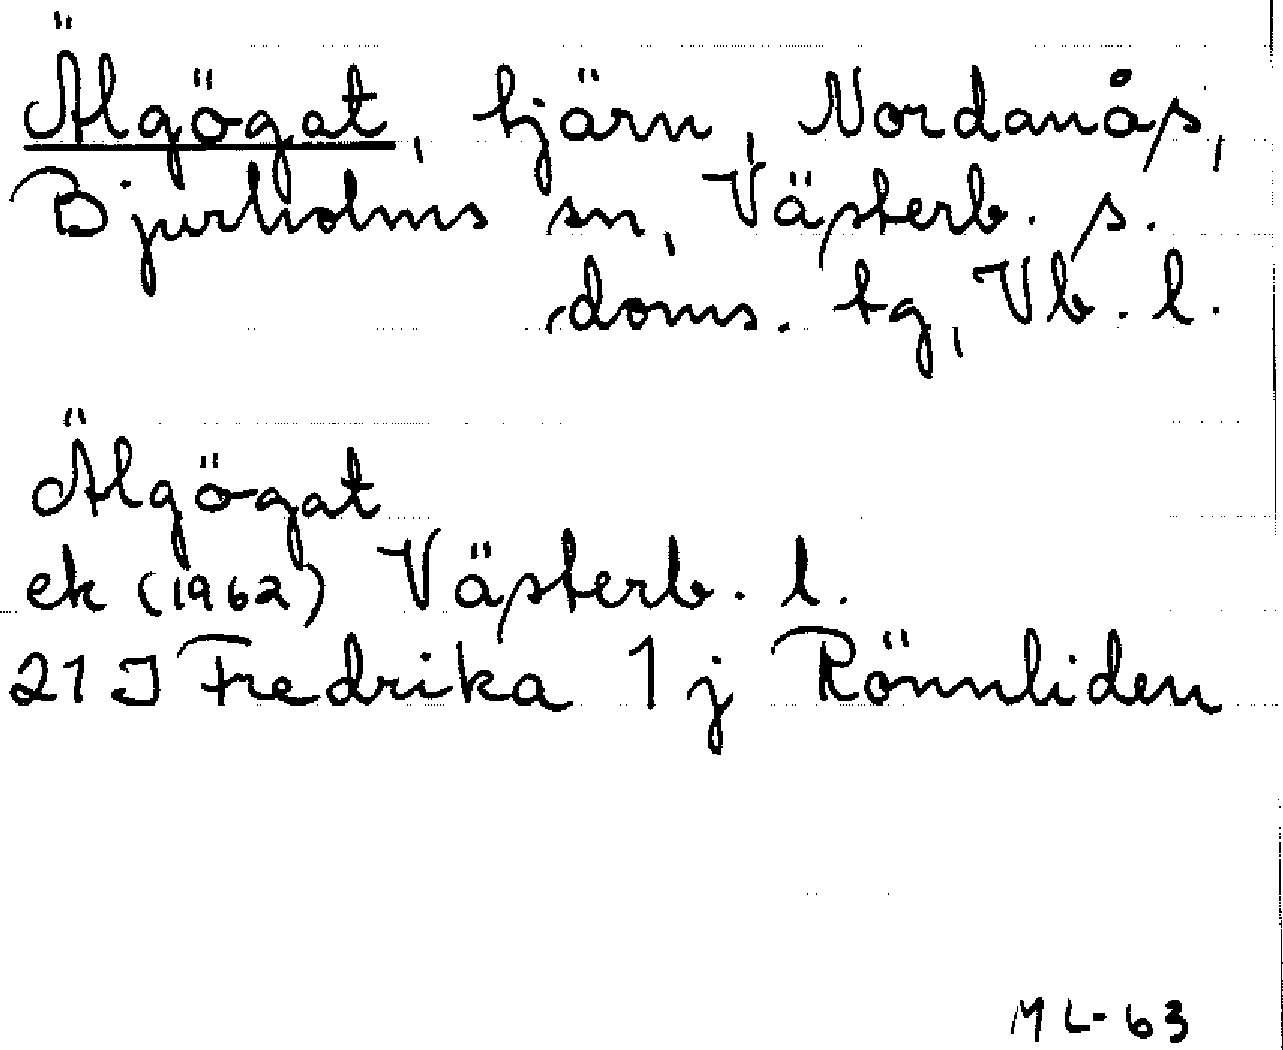 Älgögat, tjärn, Nordanås,
Bjurholms sn, Västerb. s.
doms. tg, Vb. l.
Älgögat
ek (1962) Västerb. l.
21 J Fredrika 1 j Rönnliden
ML-63